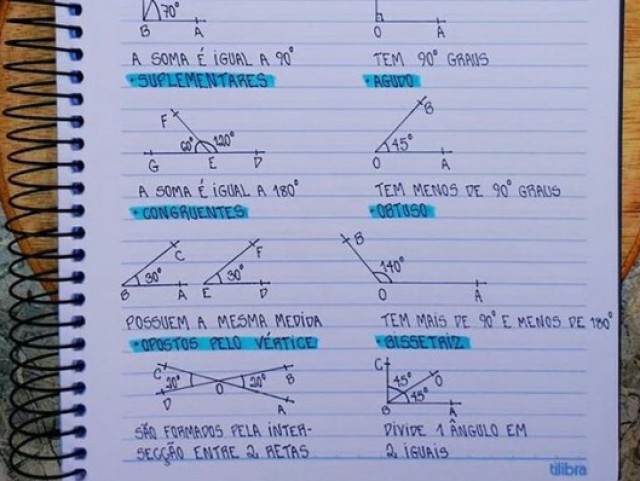 70°
B A
O A
A SOMA É IGUAL A 90°
TEM 90° GRAUS
• SUPLEMENTARES
• AGUDO
F
60° 120°
G E D
B
45°
O A
A SOMA É IGUAL A 180°
TEM MENOS DE 90° GRAUS
• CONGRUENTES
• OBTUSO
C
30°
B A
F
30°
E D
B
140°
O A
POSSUEM A MESMA MEDIDA
TEM MAIS DE 90° E MENOS DE 180°
• OPOSTOS PELO VÉRTICE
• BISSETRIZ
C B
20° O 20°
D A
C
45° O
45°
B A
SÃO FORMADOS PELA INTER-
SECÇÃO ENTRE 2 RETAS
DIVIDE 1 ÂNGULO EM
2 IGUAIS
tilibra